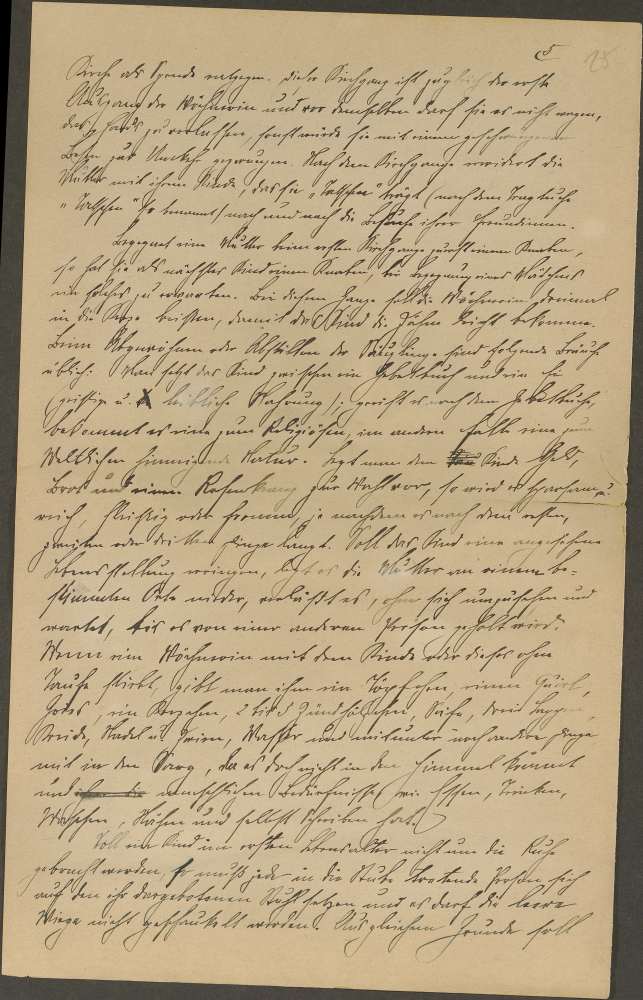 5
Kirche als Spende entgegen. Dieser Kirchgang ist zugleich der erste
Ausgang der Wöchnerin und vor demselben darf sie es nicht wagen,
das Haus zu verlassen, sonst würde sie mit einem
Besen zur Umkehr gezwungen. Nach dem Kirchgange erwidert die
Mutter mit ihrem Kinde, das sie „ trägt (nach dem Tragtuche
" so benannt) nach und nach die Besuche ihrer Freundinnen.
Begegnet eine Mutter beim ersten Kirchgange zuerst einem Knaben,
so hat sie als nächstes Kind einen Knaben, bei Begegnung eines Mädchens
ein solches zu erwarten. Bei diesem Gange soll die Wöchnerin dreimal
in die beißen, damit das Kind die Zähne leicht bekomme.
Beim Abgewöhnen oder Abstillen der Säuglinge sind folgende Bräuche
üblich: Man setzt das Kind zwischen ein Gebetbuch und ein
(geistige u. leibliche Nahrung); greift es nach dem Gebetbuche,
bekommt es eine zum Religiösen, im andern Falle eine zum
Weltlichen hinneigende Natur. Legt man dem Kinde Geld,
Brot und einen Rosenkranz zur Wahl vor, so wird es sparsam u.
reich, fleißig oder fromm, je nachdem es nach dem ersten,
zweiten oder dritten Dinge langt. Soll das Kind eine angesehene
Lebensstellung erringen, legt es die Mutter an einem be-
stimmten Orte nieder, verläßt es, ohne sich umzusehen und
wartet, bis es von einer anderen Person geholt wird.
Wenn eine Wöchnerin mit dem Kinde oder dieses ohne
Taufe stirbt, gibt man ihm ein Töpfchen, einen Quirl,
ein 2 bis 3 Zündhölzchen, Seife, drei
Kreide, Nadel u. Zwirn, Wasser und mitunter noch andere Dinge
mit in den Sarg, da es doch nicht in den Himmel kommt
und menschlichen Bedürfnisse wie Essen, Trinken,
Waschen, Nähen und selbst Schreiben hat.
Soll ein Kind im ersten Lebensalter nicht um die Ruhe
gebracht werden, so muß jede in die Stube tretende Person sich
auf den ihr dargebotenen Stuhl setzen und es darf die leere
Wiege nicht geschaukelt werden. Aus gleichem Grunde soll